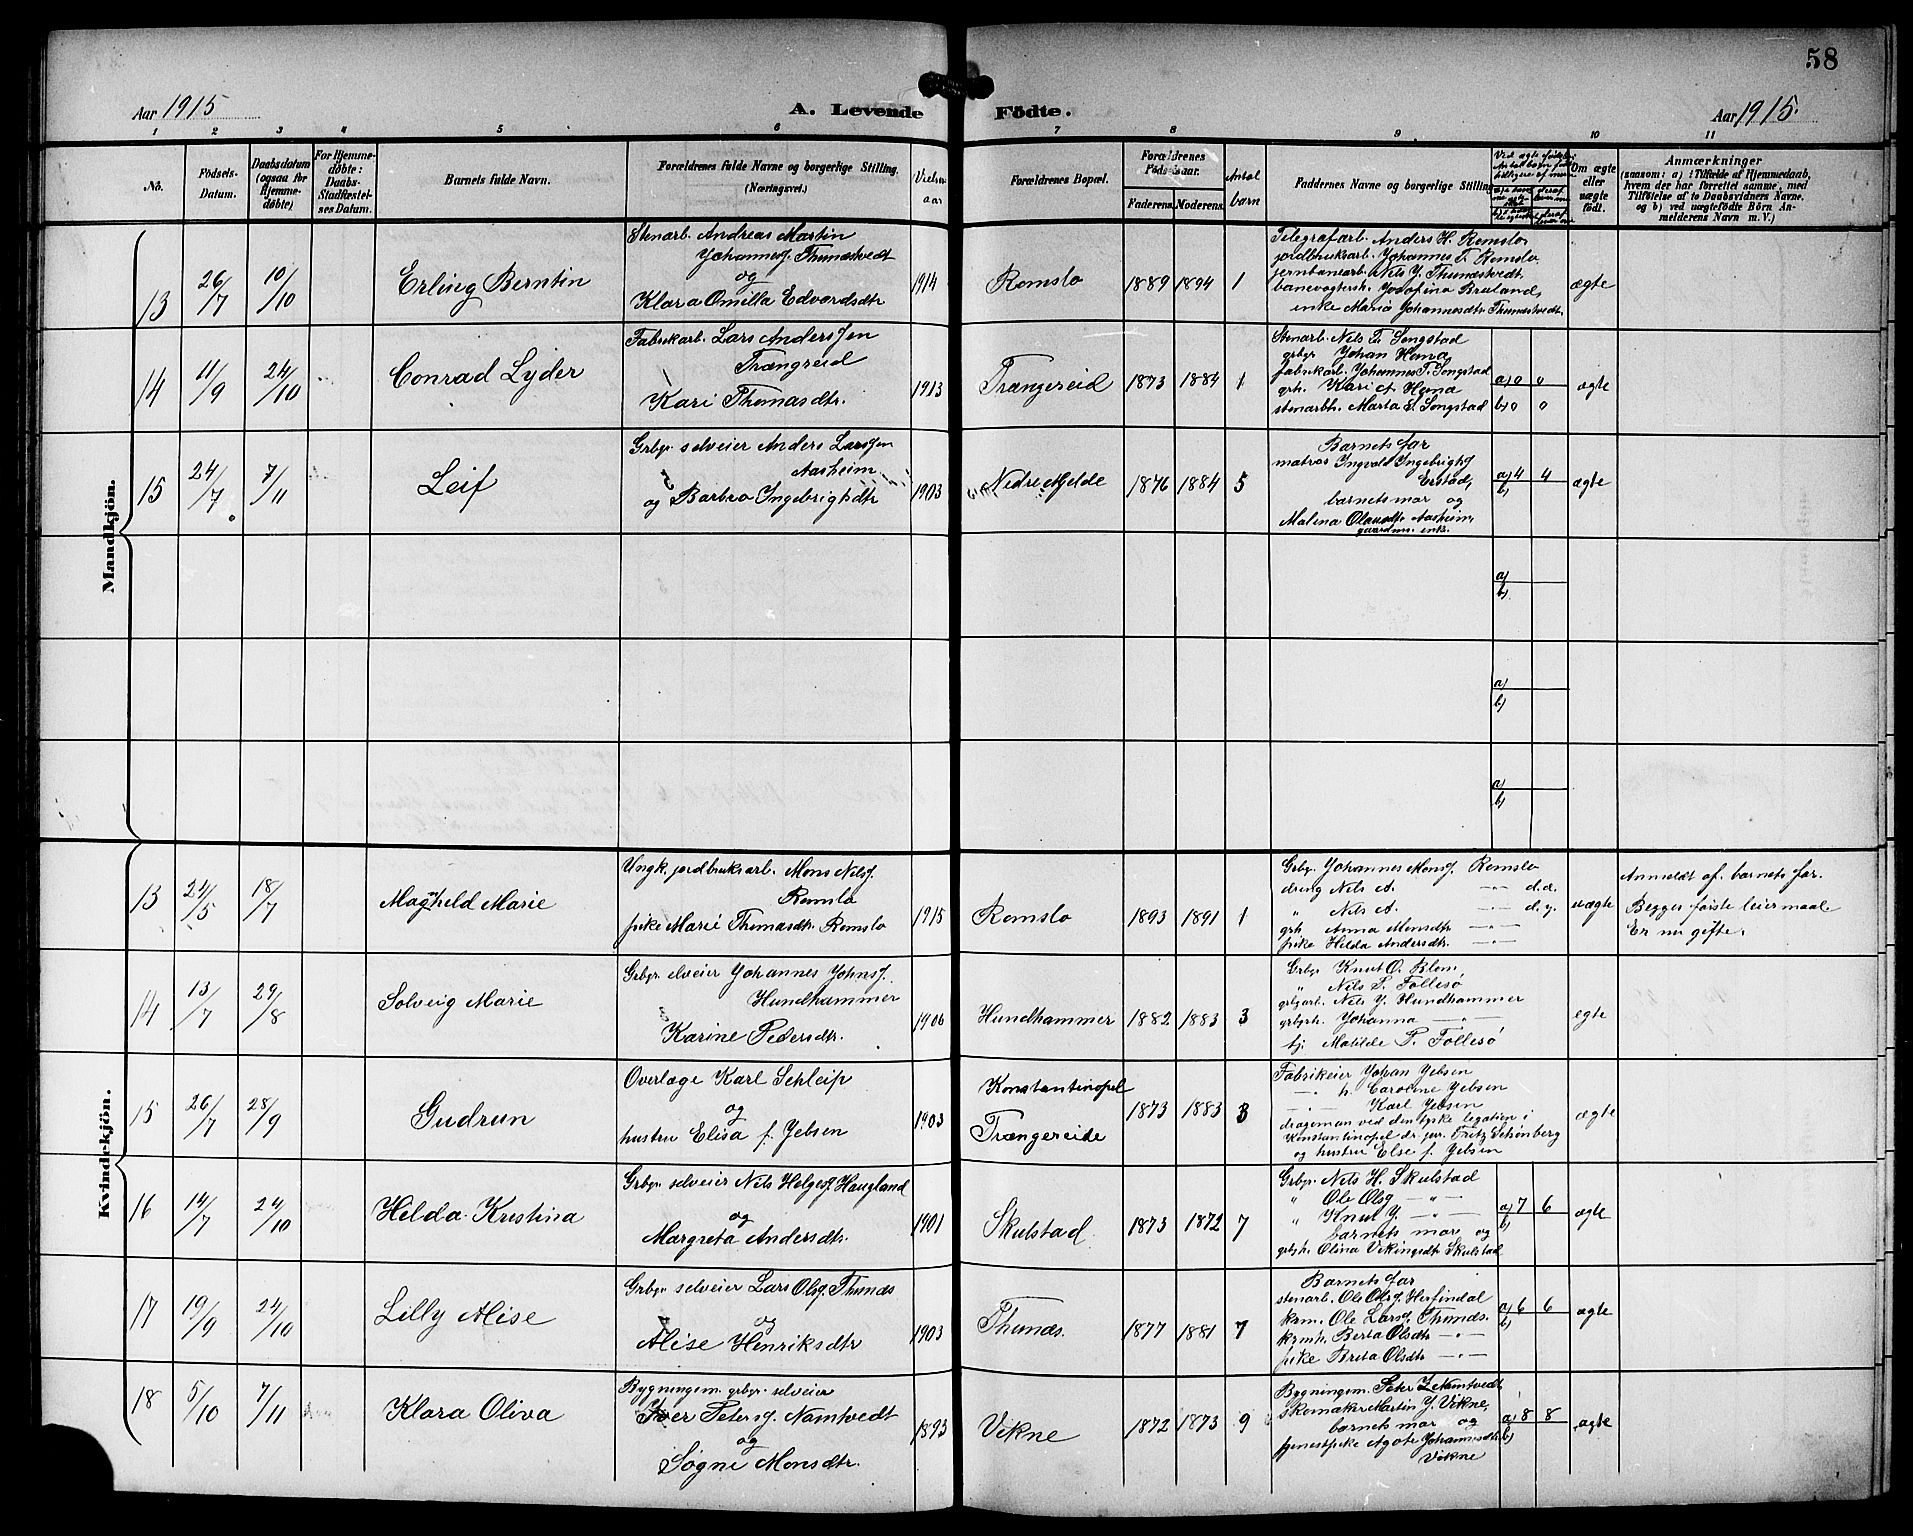 58
Aar 1915
A. Levende Födte.
Aar 1915.
1 2 3 4 5 6 7 8 9 10 11
No.
Födsels-Datum.
Daabsdatum (ogsaa for Hjemme-döbte)
For Hjemme-döbte: Daabs-Stadfæstel-ses Datum.
Barnets fulde Navn.
Forældrenes fulde Navne og borgerlige Stilling. (Næringsvei.)
Vielses aar
Forældrenes Bopæl.
Forældrenes Födselsaar.
Faderens. Moderens.
Antal barn
Faddernes Navne og borgerlige Stilling
Om ægte eller uægte födt.
Anmærkninger
(saasom: a) i Tilfælde af Hjemmedaab,
hvem der har forrettet samme, med
Tilföielse af to Daabsvidners Navne,
og b) ved uægtefödte Börn An-
melderens Navn m. V.)
Mandkjön.
13 26/7 10/10 Erling Berntin
Stenarb. Andreas Martin
Johannesf. Thunestvedt
og
Klara Omilla Edvardsdtr
1914 Romslo 1889 1894 1
Telegrafarb. Anders H. Romslo,
jordbruksarb. Johannes T. Romslo.
jernbanearb. Nils J. Thunestvedt,
banevogtersh. Josefina Bruland,
enke Maria Johannesdtr Thunestvedt.
ægte
14 11/9 24/10 Conrad Lyder
Fabrikarb. Lars Anderssen
Trængreid
Kari Thomasdtr.
1913 Trængereid 1873 1884 1
Stenarb. Nils T. Songstad
grbgr Johan Hana,
fabrikarb. Johannes T. Songstad
grh. Kari A Hana
stenarbh. Marta E. Songstad
a) 0 0
b) 0 0
ægte
15 24/7 7/11 Leif
Grbgr selveier Anders Larssen
Aasheim
og Barbro Ingebrigtsdtr
1903 Nedre Hjelde 1876 1884 5
Barnets far
matros Ingvald Ingebrigtsf
Erstad,
barnets mor og
Malena Olausdtr Aasheim,
gaardm. enke.
a) 4 4
b)
ægte
a)
b)
a)
b)
a)
b)
Kvindekjön.
13 24/5 18/7 Magnheld Marie
Ungk. jordbruksarb. Mons Nilsf.
Romslo
pike Marie Thomasdtr. Romslo
1915 Romslo 1893 1891 1
Grbgr. Johannes Monsf. Romslo
dreng Nils A. —"— d.e.
" Nils A. —"— d.y.
grh Anna Monsdtr —"—
pike Hilda Andersdtr. —"—
uægte
Anmeldt af barnets far.
Begges förste leiermaal
Er nu gifte.
14 13/7 29/8 Solveig Marie
Grbgr. elveier Johannes Johnsf.
Hundhammer
Karine Pedersdtr.
1906 Hundhammer 1882 1883 3
Grbgr Knut O. Blom,
" Nils P. Follesö
grbgarb. Nils J. Hundhammer
grbgrh. Johanna —"—
tj. Matilde P. Follesö
egte
15 26/7 28/9 Gudrun
Overlæge Karl Schleip
og
hustru Elisa f. Jebsen
1903 Konstantinopel
Trængereide 1873 1883 3
Fabrikeier Johan Jebsen
—"— h. Caroline Jebsen
—"— Karl Jebsen
dragoman ved den tyske legation i
Konstantinopel dr. jur. Fritz Schönberg
og hustru Else f. Jebsen
ægte
16 14/7 24/10 Helda Kristina
Grbgr. selveier Nils Helgesf. Haugland
og
Margreta Andersdtr.
1901 Skulstad 1873 1872 7
Grbgr. Nils H. Skulstad
" Ole Olsg —"—
" Knut J. —"—
barnets mor og
grbgrh. Olina Vikingsdtr Skulstad
a) 7 6
b)
ægte
17 19/9 24/10 Lilly Alise
Grbgr selveier Lars Olsg. Thunæs
og
Alise Henriksdtr
1903 Thunæs. 1877 1881 7
Barnets far
stenarb. Ole Olsg. Herfindal
krm. Ole Larsg. Thunæs.
krmh. Berta Olsdtr —"—
pike Brita Olsdtr —"—
a) 6 6
b)
ægte
18 5/10 7/11 Klara Oliva
Bygningsm. grbgr. selveier
Iver Petersg. Namtvedt
og
Sögni Monsdtr.
1893 Vikne 1872 1873 9
Bygningsm. Peter I. Namtvedt
skomaker Martin J. Vikne,
barnets mor og
tjenestpike Agote Johannesdtr
Vikne
a) 8 8
b)
ægte